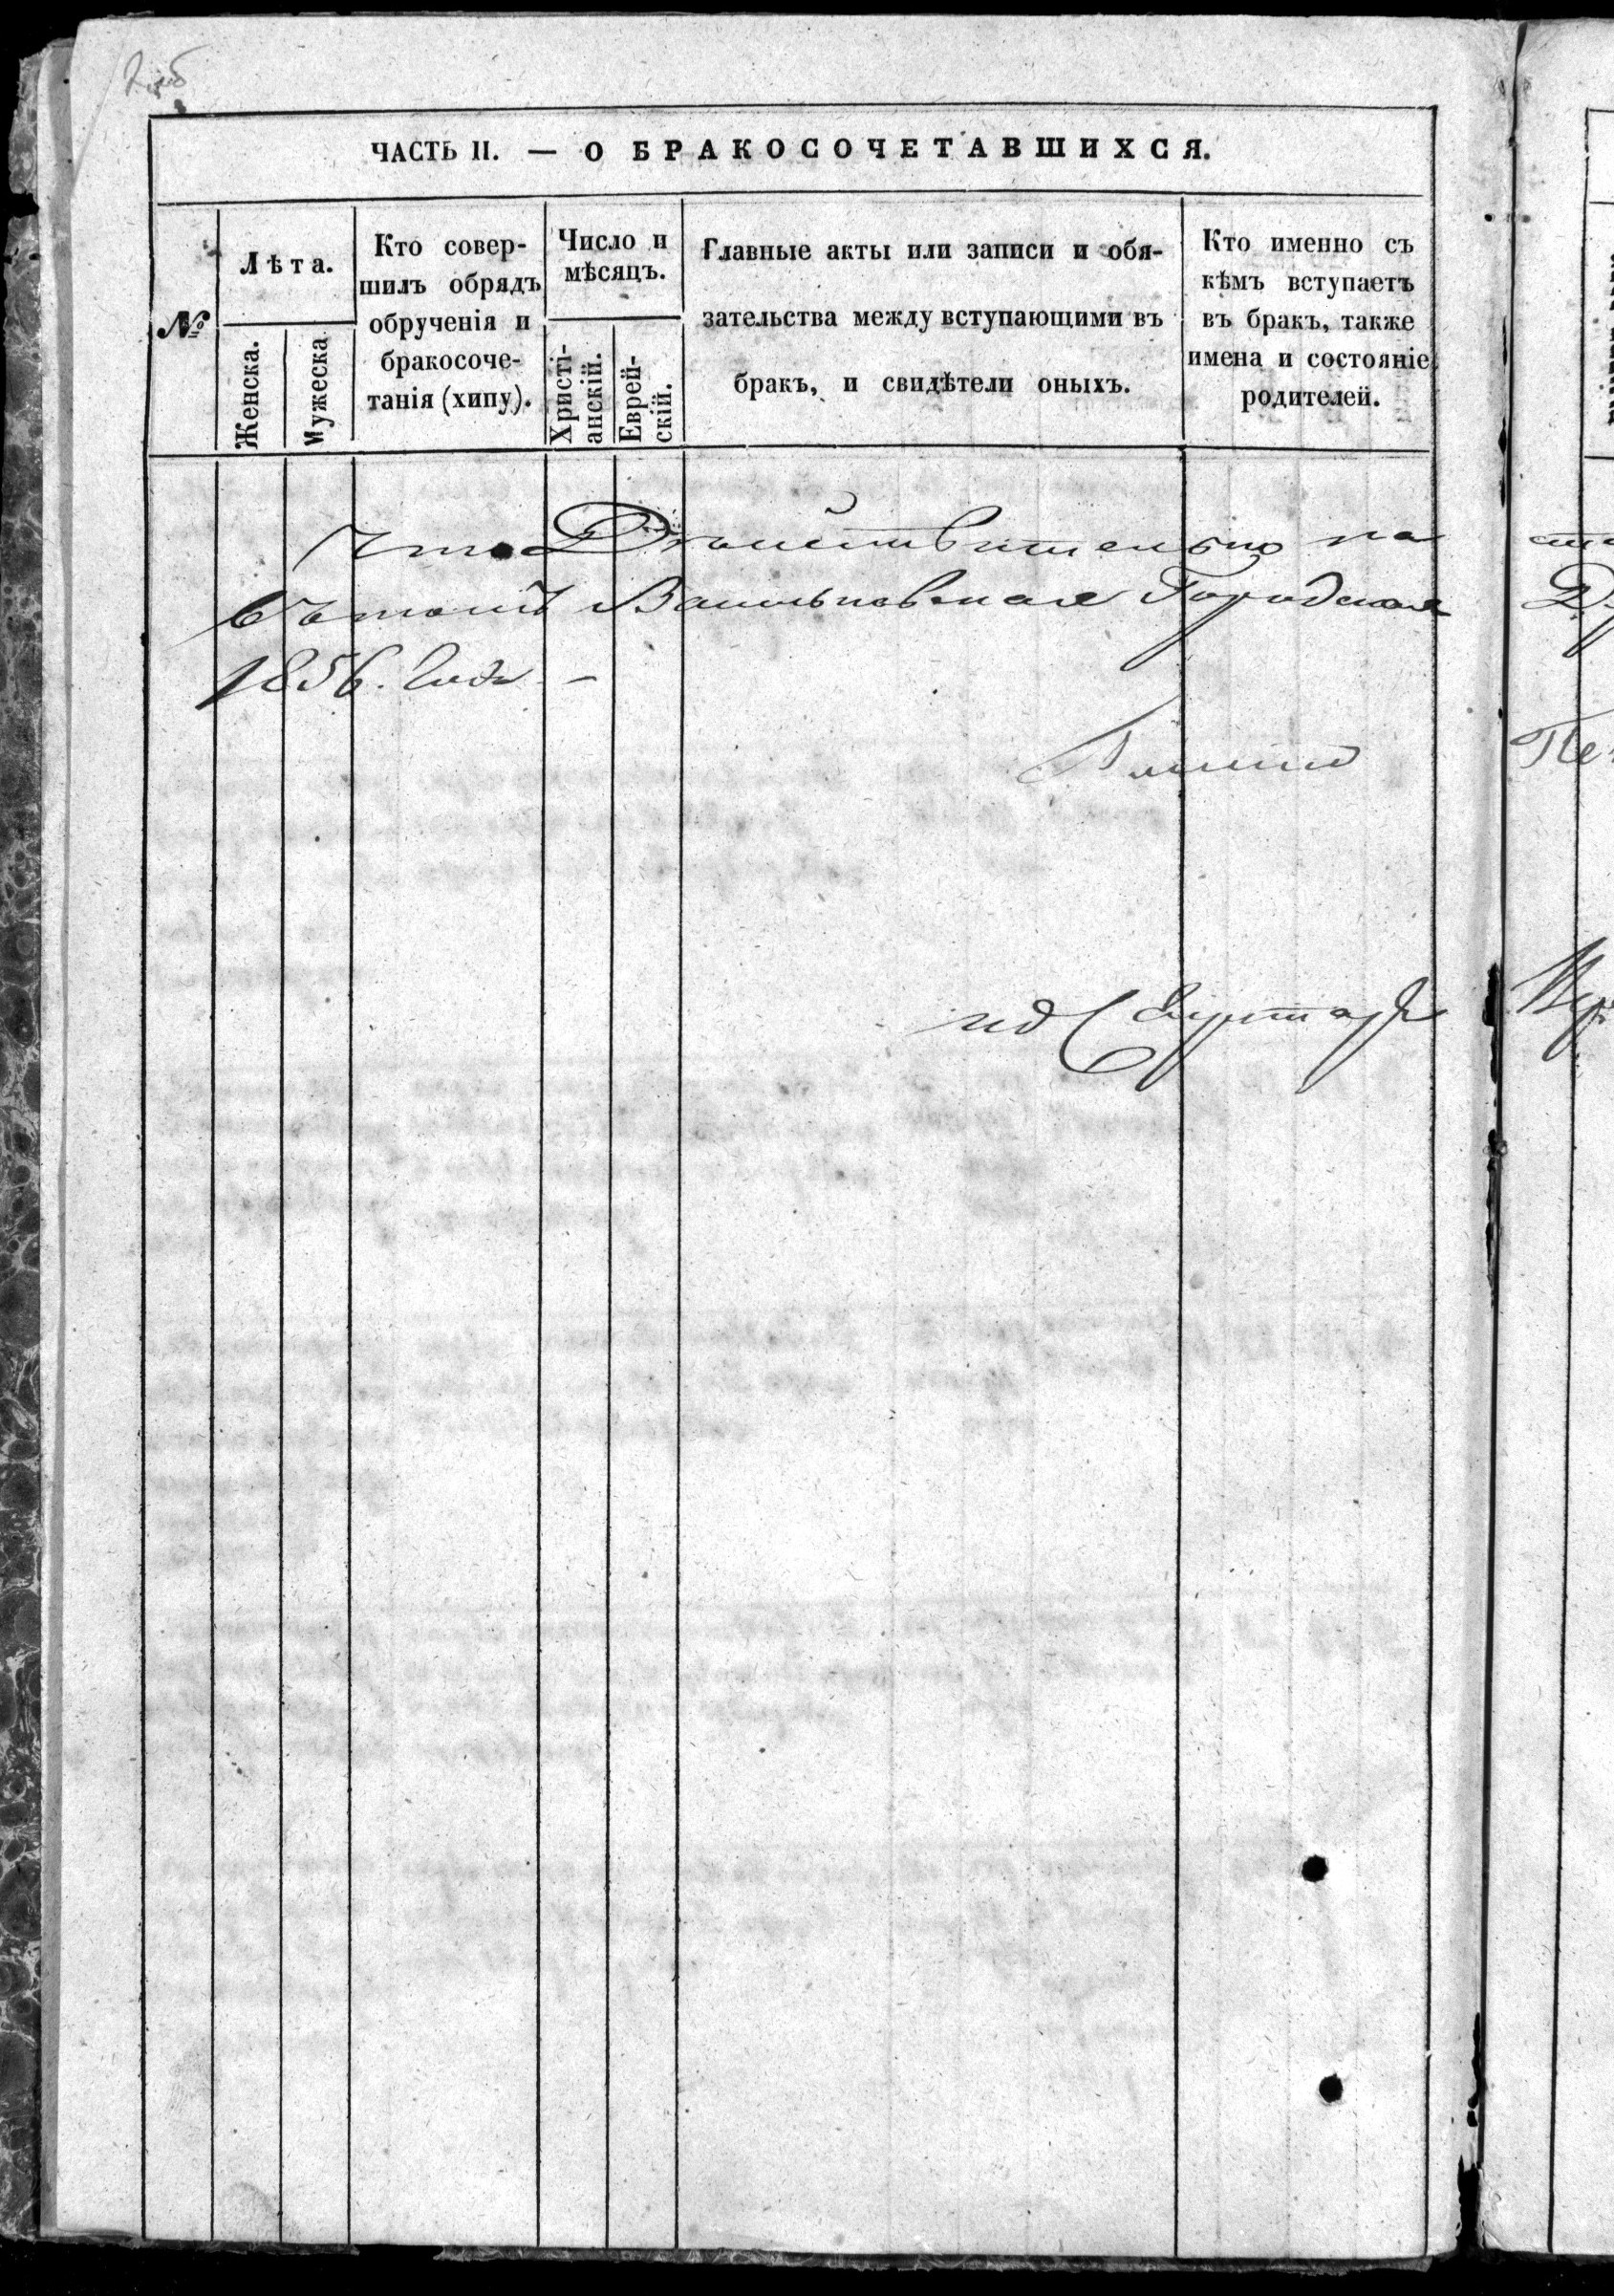 ЧАСТЬ II. — О БРАКОСОЧЕТАВШИХСЯ.
№
Лѣта.
Женска.
Мужеска
Кто совер-
шилъ обрядъ
обрученія и
бракосоче-
танія (хипу).
Число и
мѣсяцъ.
Христі-
анскій.
Еврей-
скій.
Главные акты или записи и обя-
зательства между вступающими въ
бракъ, и свидѣтели оныхъ.
Кто именно съ
кѣмъ вступаетъ
въ бракъ, также
имена и состояніе
родителей.
Что Дѣйствительно на
въ томъ Васильковская Городская
1856. Года –